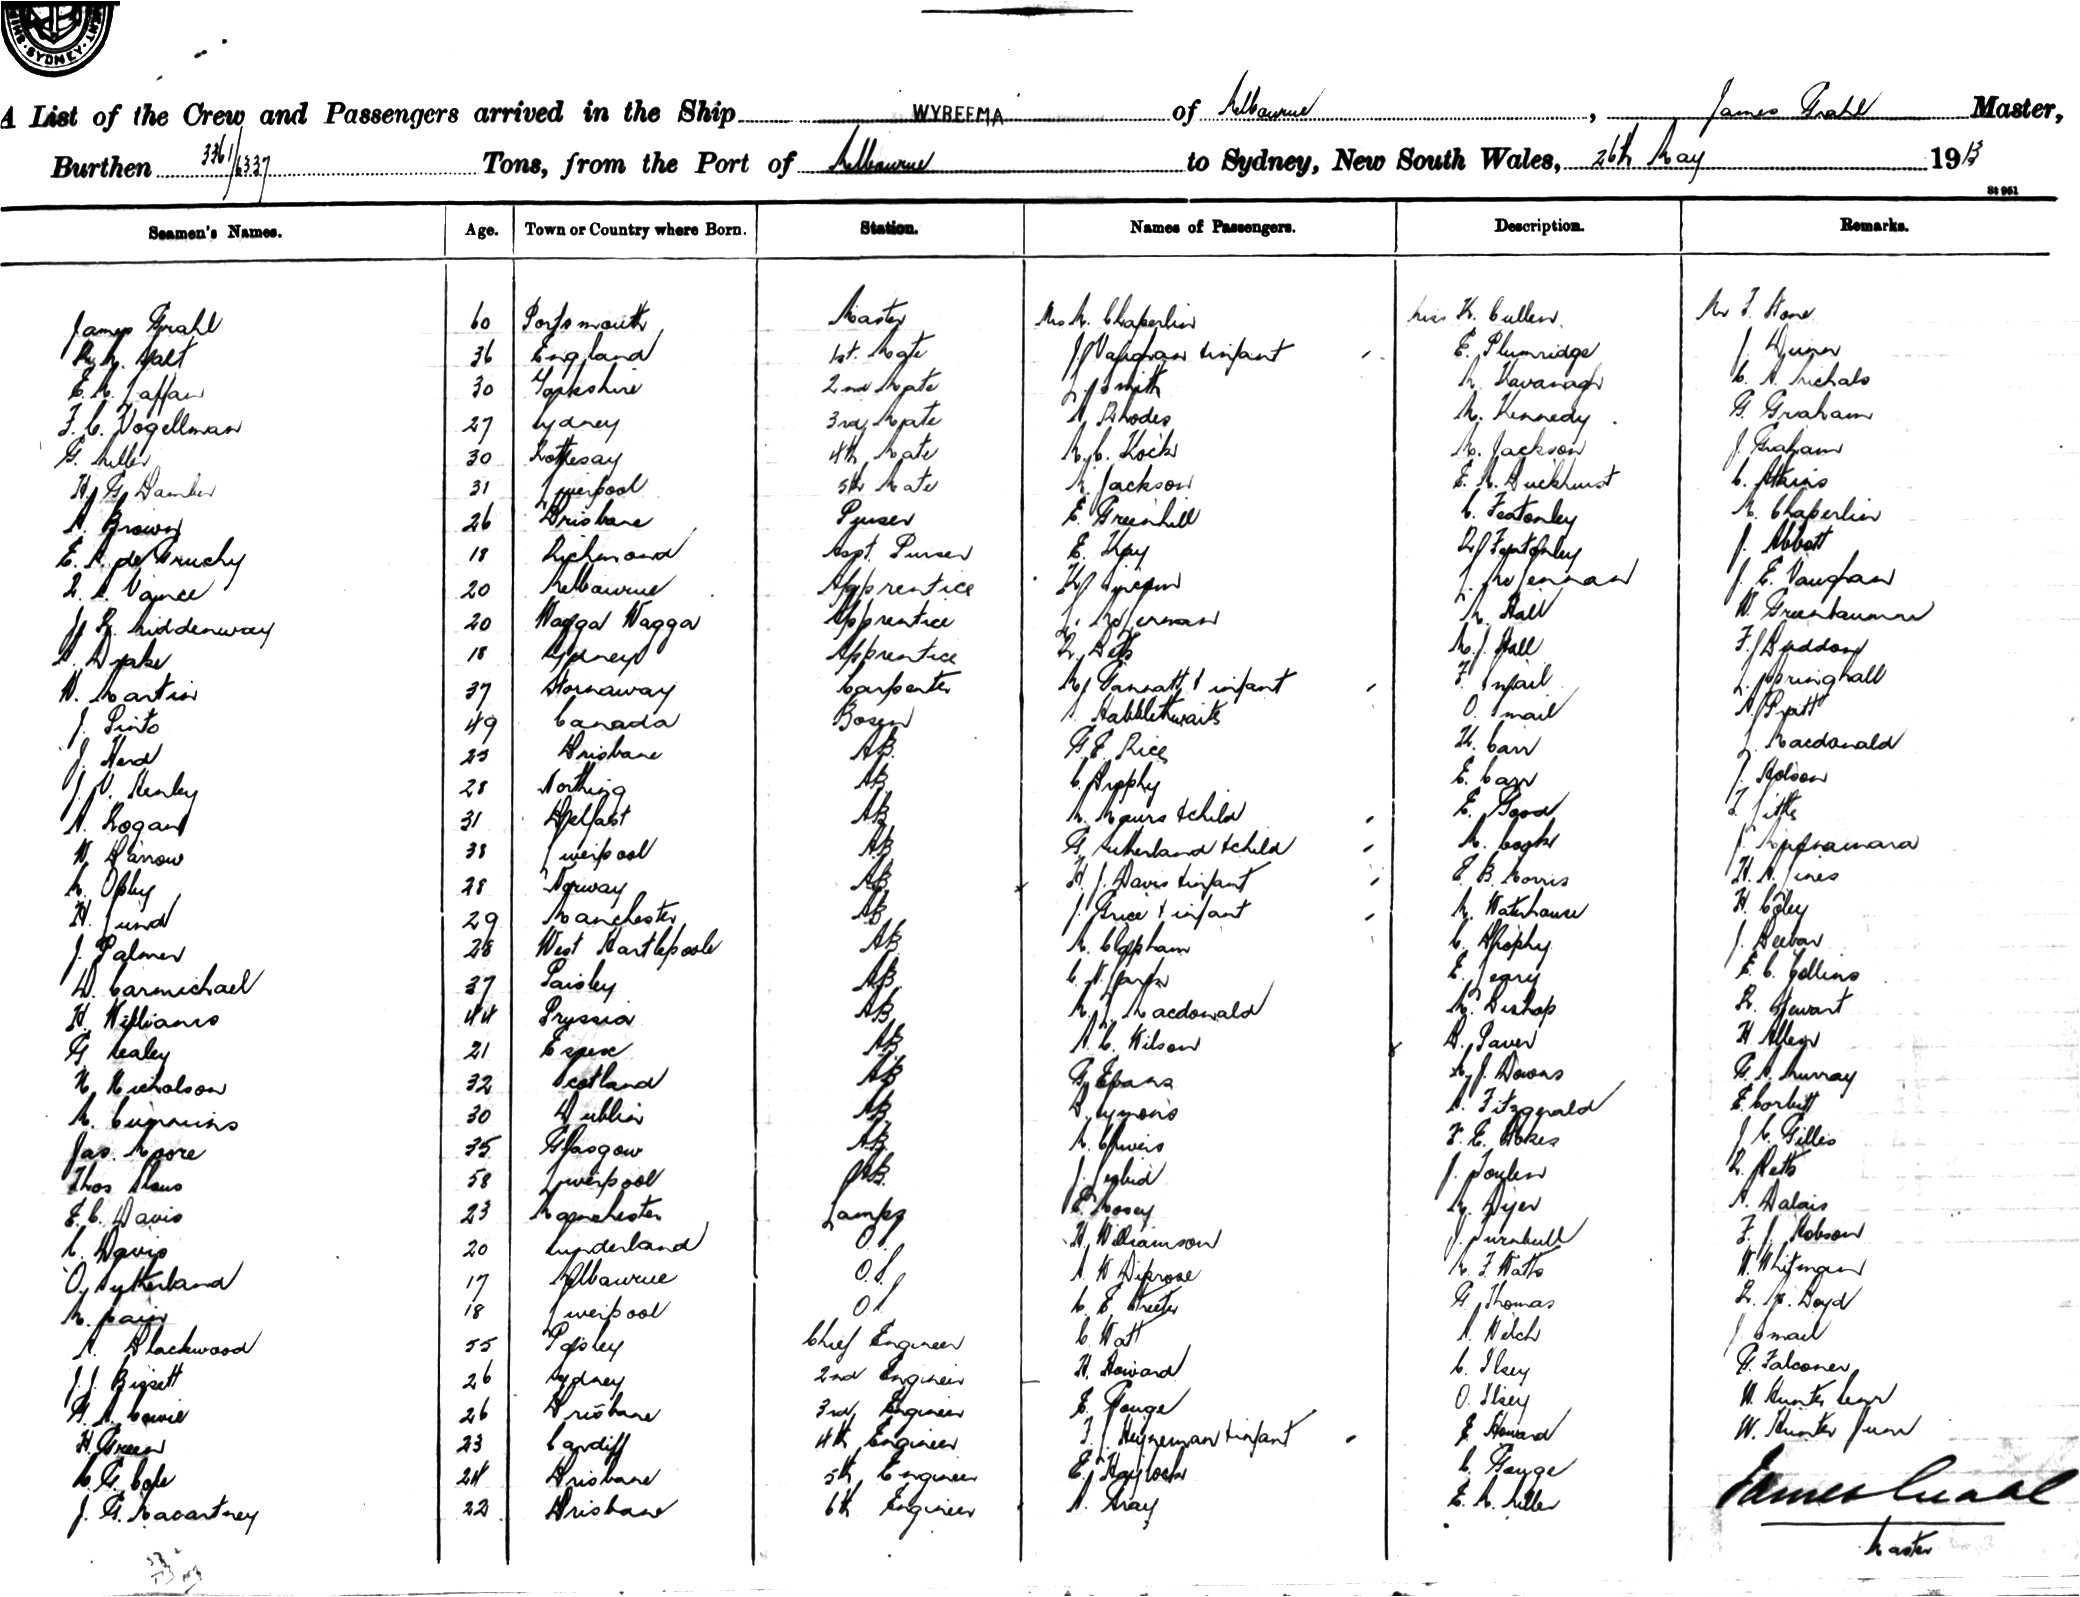 SYDNEY
A List of the Crew and Passengers arrived in the Ship WYREEMA of Melbourne, James Grahl Master,
Burthen 3361/6337 Tons, from the Port of Melbourne to Sydney, New South Wales, 26th May 1913
St 961
Seamen's Names. Age. Town or Country where Born. Station. Names of Passengers. Description. Remarks.
James Grahl 60 Portsmouth Master Mrs M. Chaperlin Miss K. Cullen Mr F. Stone
36 England 1st. Mate J. Vaughan & infant E. Plumridge J.
E. M. Jaffar 30 Yorkshire 2nd Mate L. J. Smith M. Kavanagh C. A. Nichols
F. C. Vogellman 27 Sydney 3rd Mate A. Rhodes M. Kennedy G. Graham
G. Miller 30 Rothesay 4th Mate M. C. Kock M. Jackson J. Graham
H. G. Damber 31 Liverpool 5th Mate M. Jackson E. M. Duckhurst C. Atkins
A. Brown 26 Brisbane Purser E. Greenhill C. Featonley M. Chaperlin
E. A. de Gruchy 18 Richmond Asst. Purser E. Kay Featonley J. Abbott
R. A. Vance 20 Melbourne Apprentice J. McLennan J. E. Vaughan
J. R. Middenway 20 Wagga Wagga Apprentice M. Hall W. Greenbaumn
Drake 18 Sydney Apprentice R. Betts M. J. Hall F. J. Duddon
W. Martin 37 Stornaway Carpenter M. & infant F. Smail L. Springhall
J. Pinto 49 Canada Bosun S. Habblethwaite O. Smail A. Pratt
J. Herd 23 Brisbane AB. G. E. Rice K. Carr J. Macdonald
J. V. Henley 28 Worthing AB C. Brophy E. Carr J. Hobson
A. Logan 31 Belfast AB M. & child E. Good
W. Darrow 38 Liverpool AB G. Sutherland & child M. J. McNamara
M. 28 Norway AB H. J. Davis & infant E. B. Morris H. A. Jones
H. Lund 29 Manchester AB J. Grice & infant M. Waterhouse H. Coley
J. Palmer 28 West Hartlepoole AB M. Clapham C. Brophy J. Beevor
D. Carmichael 37 Paisley AB C. W. E. Leary E. C. Collins
H. Williams 44 Prussia AB M. J. Macdonald M. Bishop R. Stewart
G. Healey 21 Essex AB A. C. Wilson D. Paver H. Allen
N. Nicholson 32 Scotland AB G. Evans M. J. Downs G. A. Murray
M. Cummins 30 Dublin AB D. Symons A. Fitzgerald E. Corbett
Jas. Moore 35 Glasgow AB M. F. E. Stokes J. C. Gillis
Thos 58 Liverpool AB. J. J. R. Betts
E. C. Davis 23 Manchester Lamps E. Mosey M. Dyer A. Dalais
C. Davis 20 Sunderland O.S. H. Williamson J. Turnbull F. J. Robson
O. Sutherland 17 Melbourne O.S. A. W. Diprose M. F. Watts W. Whitman
M. 18 Liverpool O.S. C. E. Streeter G. Thomas Boyd
A. Blackwood 55 Paisley Chief Engineer C. Watt A. Welch J. Smail
J. J. Bissett 26 Sydney 2nd Engineer H. Howard C. Ilsey G. Falconer
G. A. Cowie 26 Brisbane 3rd Engineer E. Gouge O. Ilsey W. Hunter Senr
H. Green 23 Cardiff 4th Engineer F. J. Heyneman & infant E. Howard W. Hunter Junr
C. G. Cole 24 Brisbane 5th Engineer E. Haylock C. Gouge
J. G. Macartney 22 Brisbane 6th Engineer A. Gray E. M. Miller
James Grahl
Master